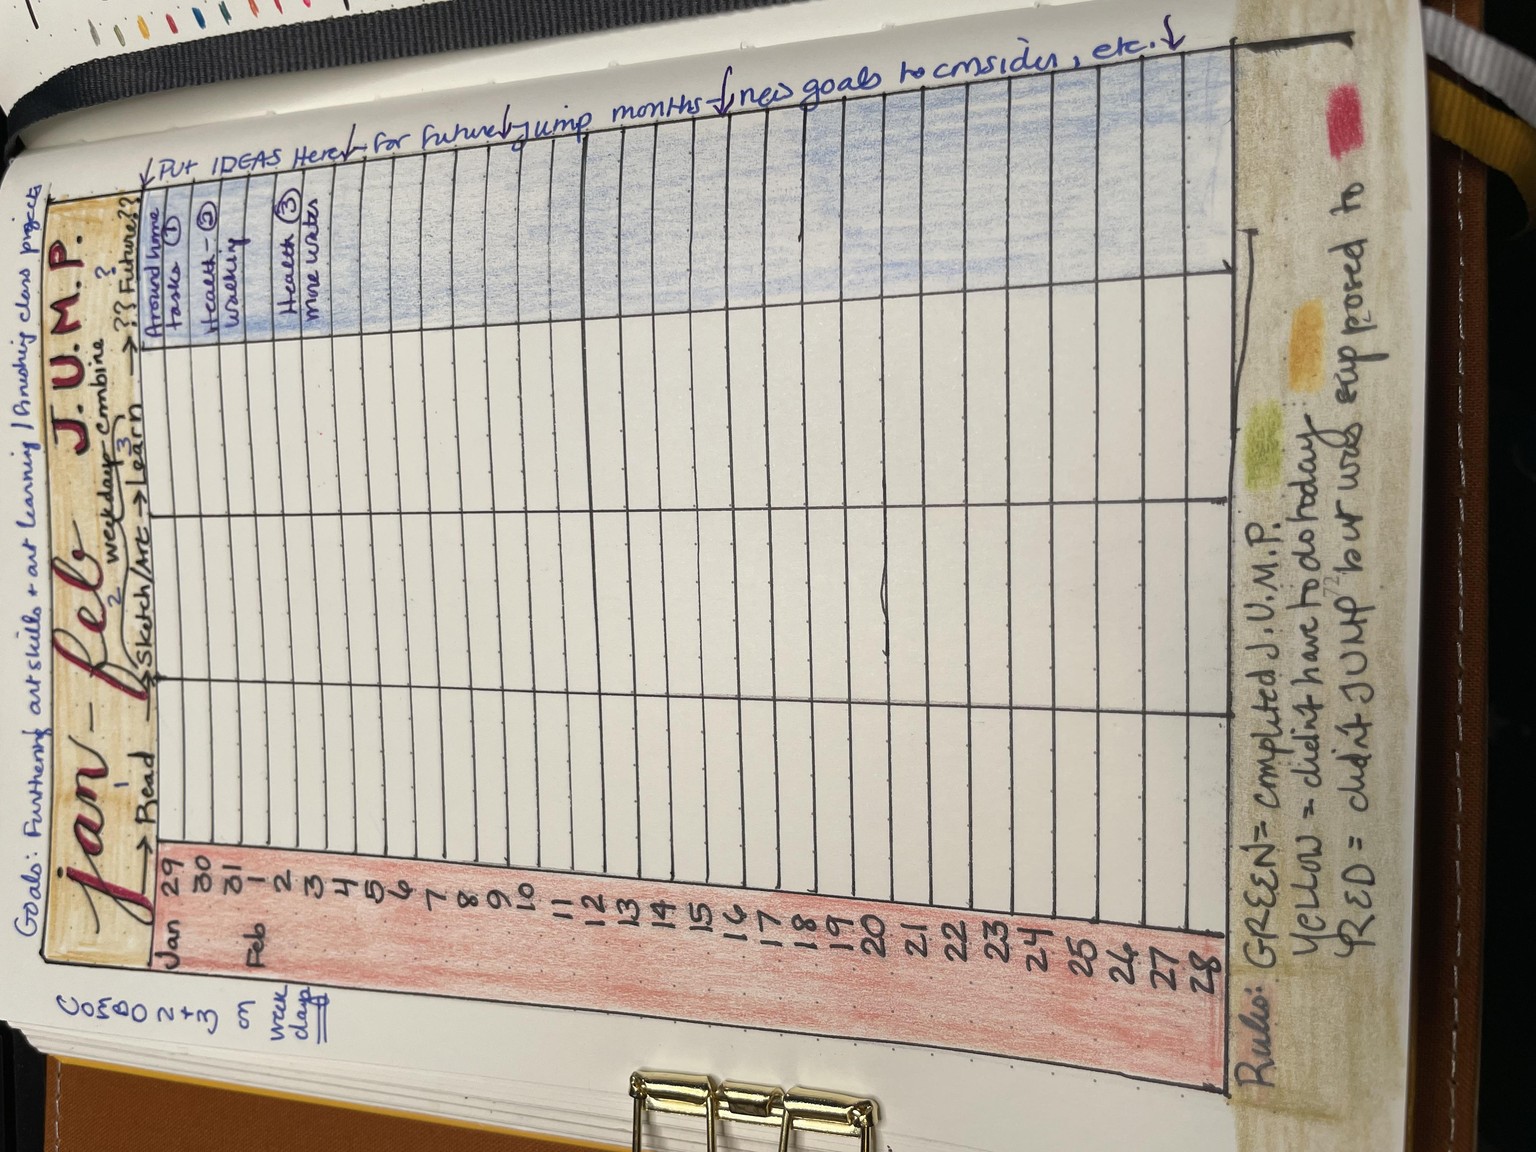 Goals: Furthering art skills + art learning / finishing class projects
jan - feb J.U.M.P.
2 weekday combine ?
1 2 3
→ Read → Sketch/Art → Learn → ?? Future??
↓ Put IDEAS Here ↓ for future ↓ jump months ↓ new goals to consider, etc. ↓
Around home
tasks ①
Health - ②
walking
Health ③
more water
Jan 29
30
31
Feb 1
2
3
4
5
6
7
8
9
10
11
12
13
14
15
16
17
18
19
20
21
22
23
24
25
26
27
28
COMBO
2 + 3
on
week
days
Rules: GREEN = completed J.U.M.P.
Yellow = didn't have to do today
RED = didn't JUMP but was supposed to